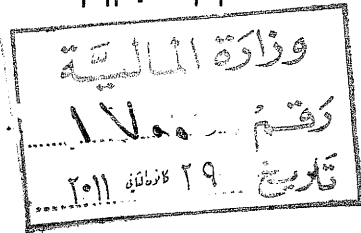 وزارة المالية
رقم ١٧٠٠
تاريخ ٢٩ كانون الثاني ٢٠١١